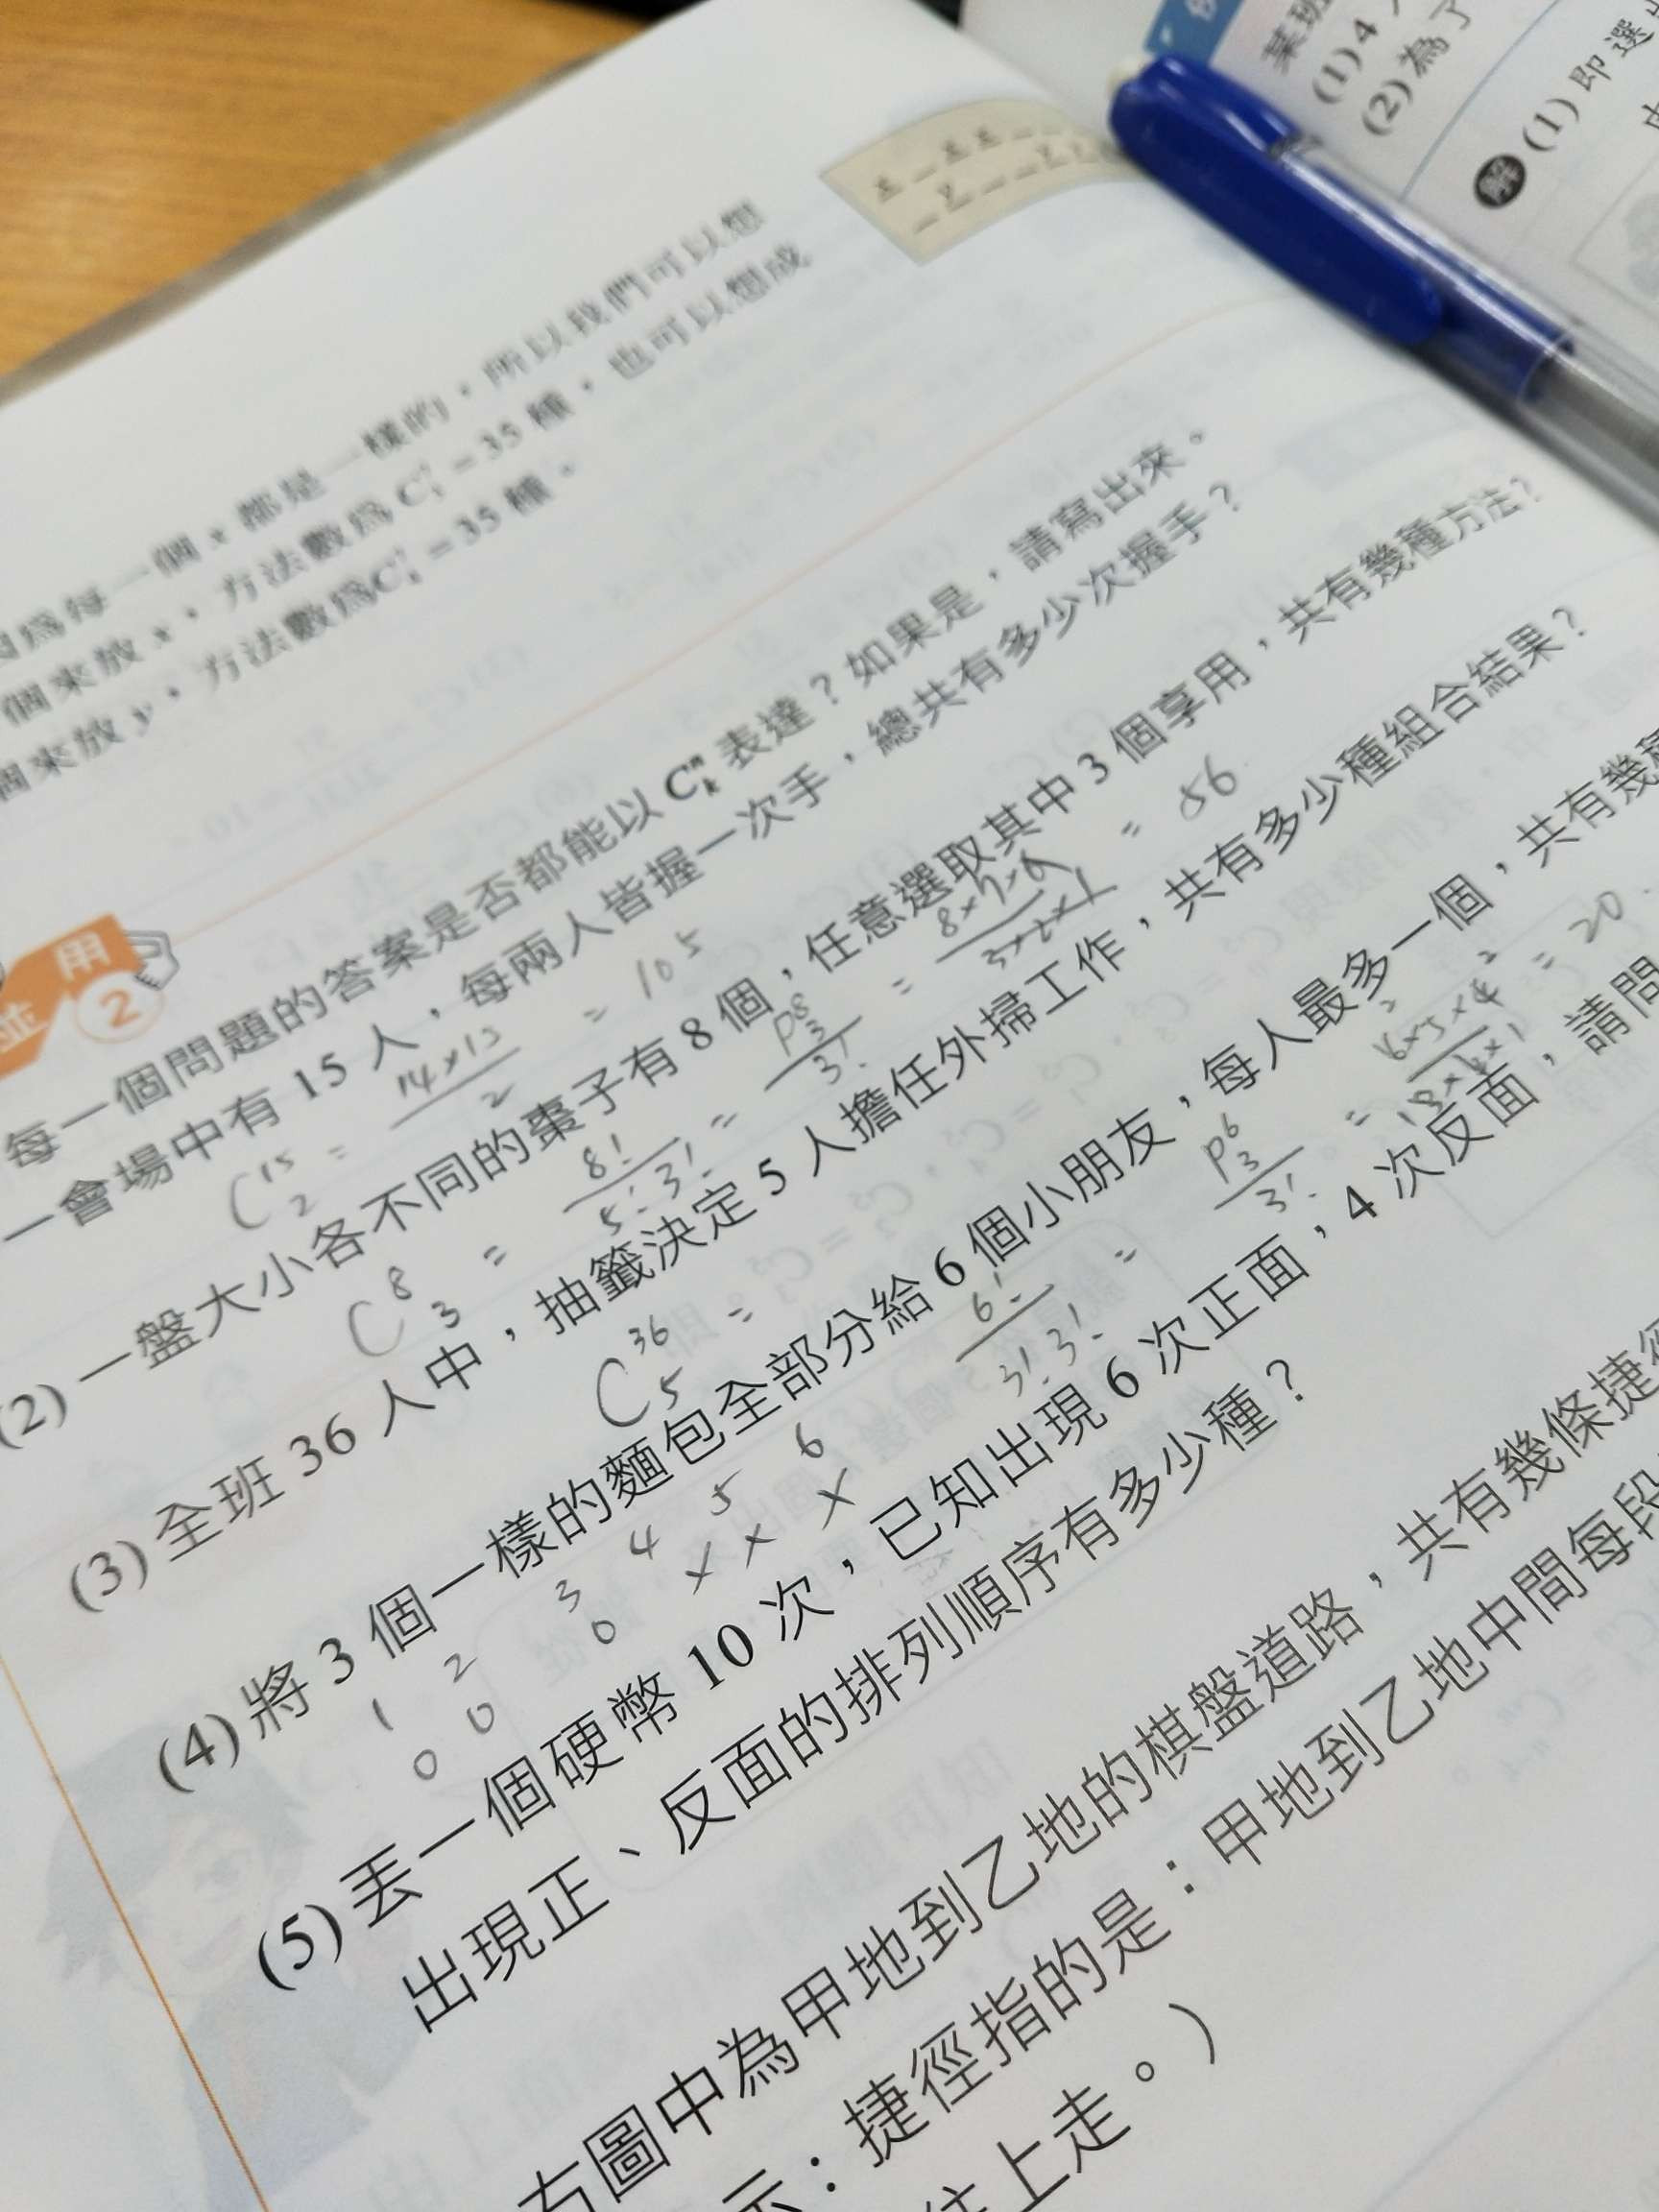 因為每一個 x 都是一樣的，所以我們可以想
個來放 x，方法數為 C = 35 種，也可以想成
個來放 y，方法數為 C = 35 種。
用
2
每一個問題的答案是否都能以 Cⁿₖ 表達？如果是，請寫出來。
一會場中有 15 人，每兩人皆握一次手，總共有多少次握手？
C¹⁵₂ = 14×15 / 2 = 105
(2) 一盤大小各不同的棗子有 8 個，任意選取其中 3 個享用，共有幾種方法？
C⁸₃ = 8! / 5! 3! = P⁸₃ / 3! = 8×7×6 / 3×2×1 = 56
(3) 全班 36 人中，抽籤決定 5 人擔任外掃工作，共有多少種組合結果？
C³⁶₅ =
(4) 將 3 個一樣的麵包全部分給 6 個小朋友，每人最多一個，共有幾種
6! / 3! 3! = P⁶₃ / 3! = 6×5×4 / = 20
1 2 3 4 5 6
0 0 0 × × ×
(5) 丟一個硬幣 10 次，已知出現 6 次正面，4 次反面，請問
出現正、反面的排列順序有多少種？
右圖中為甲地到乙地的棋盤道路，共有幾條捷徑
示：捷徑指的是：甲地到乙地中間每段
往上走。）
某班
(1) 4 人
(2) 為了
解 (1) 即選出